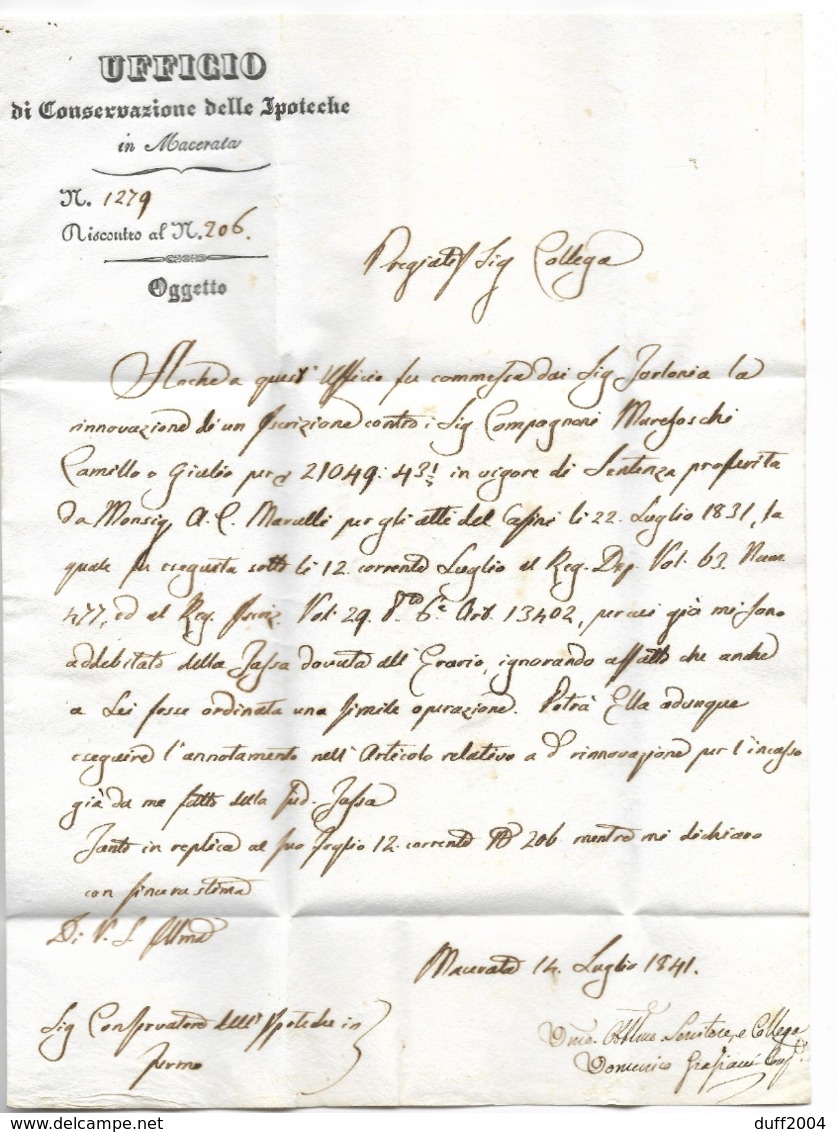 UFFICIO
di Conservazione delle Ipoteche
in Macerata
N. 1279
Riscontro al N. 206.
Oggetto
Pregiat Sig Collega
Anche a quest' Ufficio fu commessa dai Sig Torlonia la
rinnovazione di un Iscrizione contro i Sig Compagnoni Marefoschi
Camillo e Giulio per 21049:43 in vigore di Sentenza proferita
da Monsig. A. C. Marulli per gli atti del li 22. Luglio 1831, la
quale fu eseguita sotto li 12. corrente Luglio al Reg. Dep. Vol. 63. Num
477, ed al Reg. Iscriz. Vol. 29. Art. 13402, per cui già mi sono
addebitato della Tassa dovuta all' Erario, ignorando affatto che anche
a Lei fosse ordinata una simile operazione. Potrà Ella adunque
eseguire l'annotamento nell' Articolo relativo a d. rinnovazione per l'incasso
già da me fatto sulla sud. Tassa
Tanto in replica al suo foglio 12. corrente N 206 mentre mi dichiaro
con sincera stima
Di V. S. Illma
Macerata 14. Luglio 1841.
Sig Conservatore dell' Ipoteche in
Fermo
Umo. Obblmo Servitore, e Collega
Domenico Graziani
duff2004